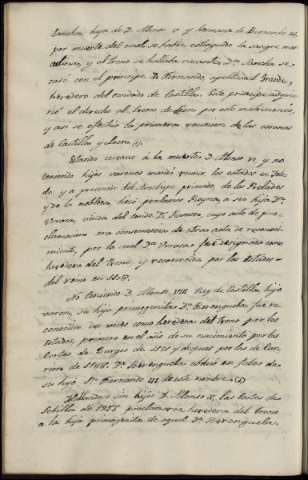 Sancha, hija de D. Alonso V y hermana de Bermudo III,
por muerte del cual se había extinguido la sangre mas-
culina, y el trono se hallaba vacante. Dª Sancha se
casó con el principe D. Fernando, apellidado
heredero del condado de Castilla. Este principe adqui-
rió el derecho al trono de Leon por este matrimonio,
y así se efectuó la primera reunion de las coronas
de Castilla y Leon (1).
Estando cercano á la muerte D. Alonso VI, y no
teniendo hijos varones mandó reunir los estados en Tole-
do, y á presencia del Arzobispo primado, de los Prelados
y de la nobleza, hizo proclamar Reyna á su hija Dª
Urraca, viuda del conde D. Ramon, cuyo acto de pro-
clamacion era consecuencia de otro acto de reconoci-
miento, por la cual Dª Urraca fue designada como
heredera del trono y reconocida por los estados
del reino en
No teniendo D. Alonso VIII Rey de Castilla, hijo
varon, su hija primogenita Dª Berenguela fué re-
conocida dos veces como heredera del trono por los
estados, primero en el año de su nacimiento por las
Cortes de Burgos de y despues por las de Car-
rion de 1188. Dª Berenguela abdicó en favor de
su hijo Sn. Fernando III de este nombre (2)
Hallandose sin hijos D. Alonso X, las Cortes de
Sevilla de 1255 proclamaron heredera del trono
á la hija primogenita de aquel Dª Berenguela.